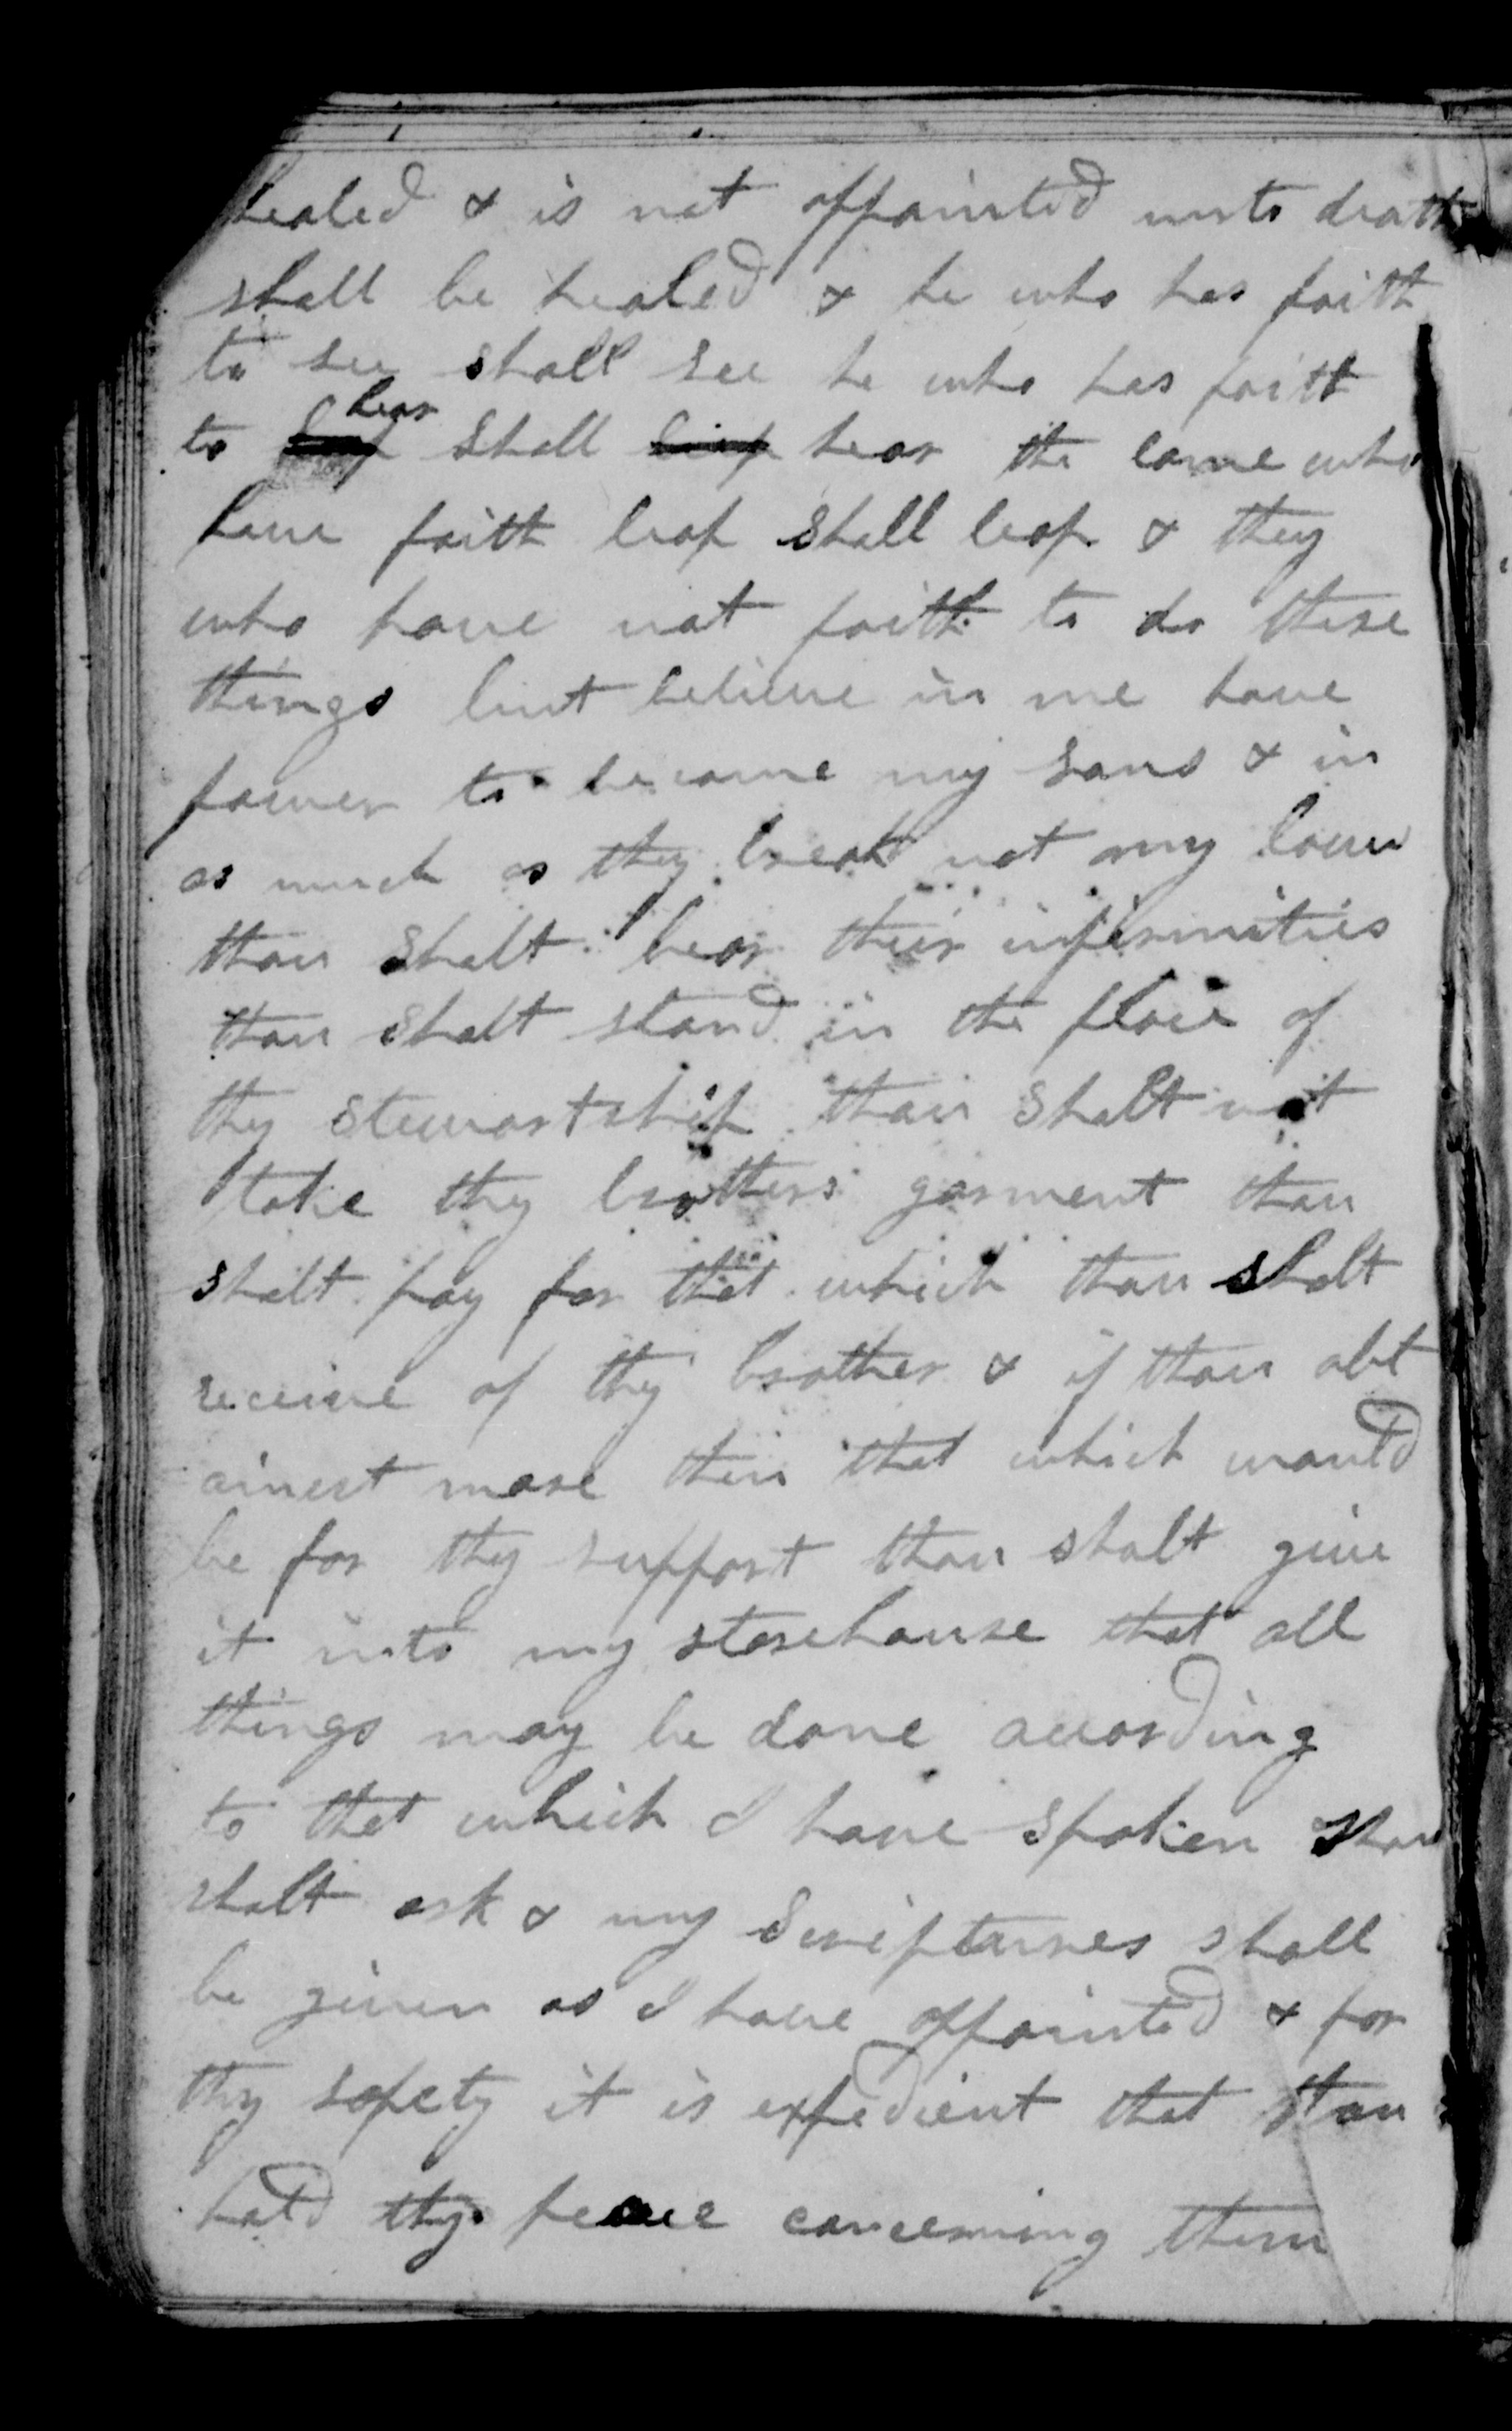 healed & is not appointed unto death
shall be healed & he who has faith
to see shall see he who has faith
to hear shall hear the lame who
have faith leap shall leap & they
who have not faith to do these
things but believe in me have
power to become my sons & in
as much as they break not my laws
thou shalt bear their infirmities
thou shalt stand in the place of
thy stewartship thou shalt not
take thy brothers garment thou
shalt pay for that which thou shalt
receive of thy brother & if thou obt
ainest more then that which would
be for thy support thou shalt give
it into my storehouse that all
things may be done according
to that which I have spoken thou
shalt ask & my Scriptures shall
be given as I have appointed & for
thy safety it is expedient that thou
hold thy peace concerning them